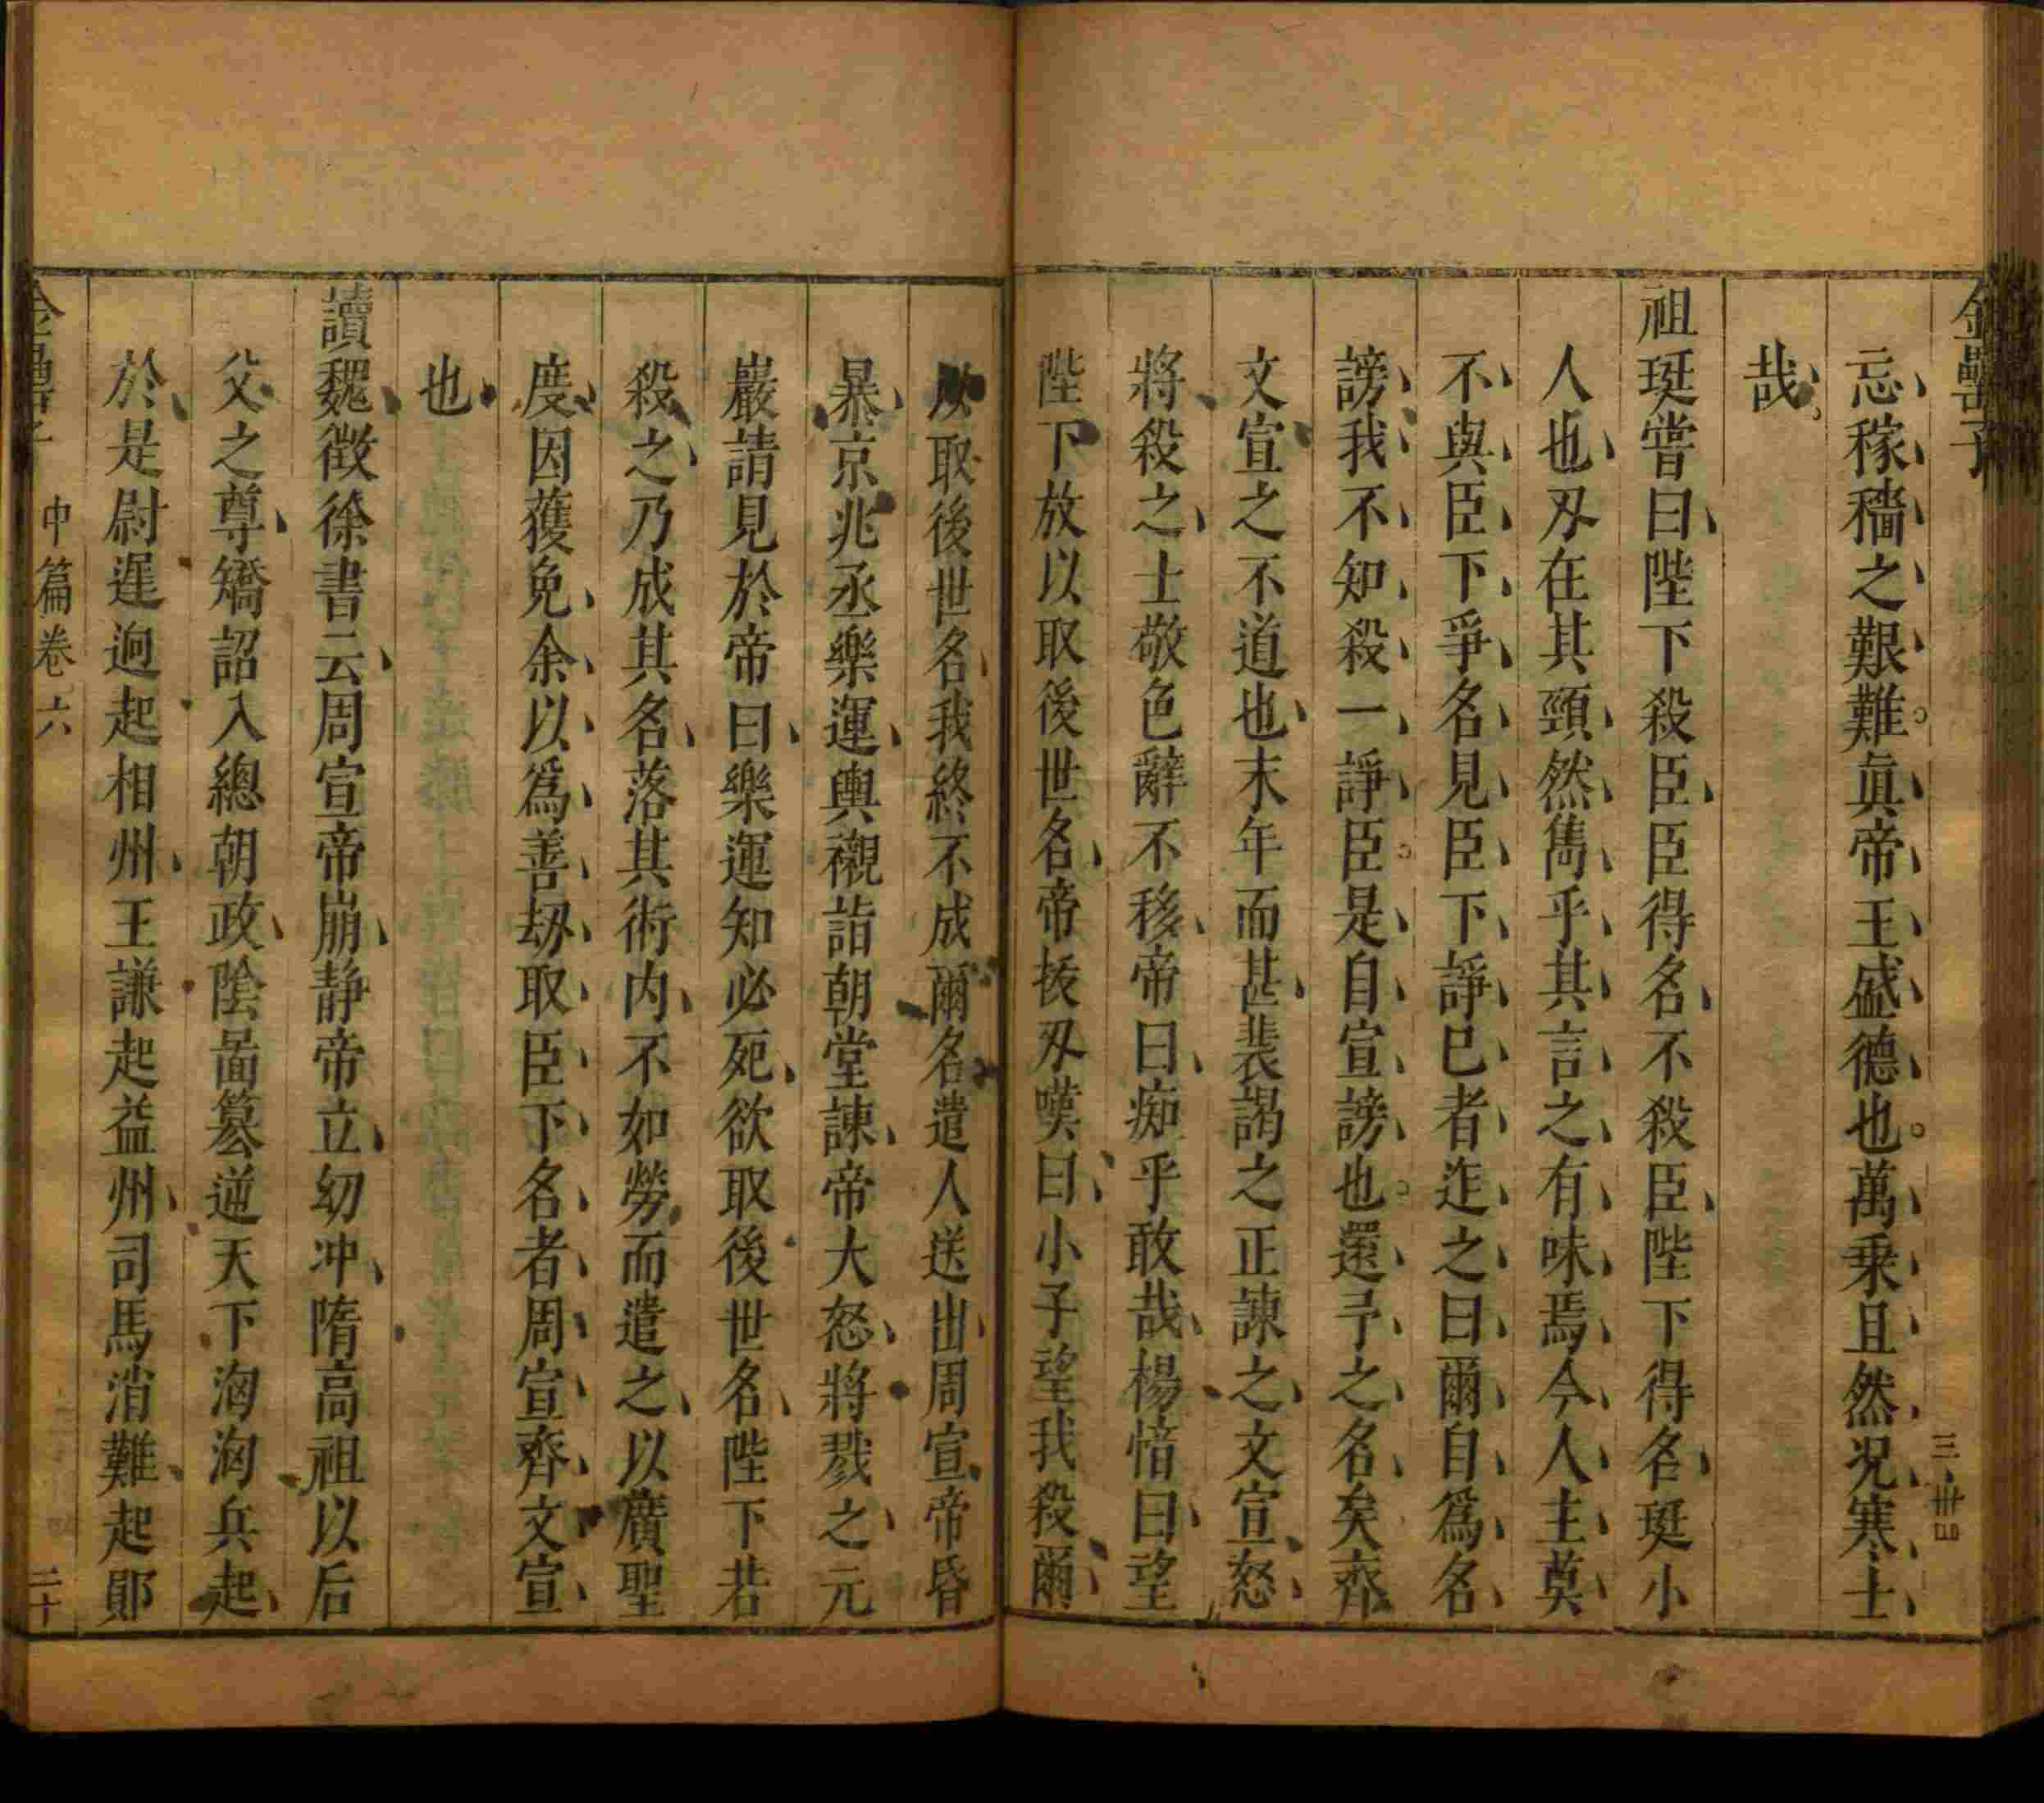 金罍子
忘稼穡之艱難眞帝王盛德也萬乗且然况寒士
哉
祖珽嘗曰陛下殺臣臣得名不殺臣陛下得名珽小
人也刄在其頸然雋乎其言之有味焉今人主莫
不與臣下爭名見臣下諍已者迕之曰爾自爲名
謗我不知殺一諍臣是自宣謗也還予之名矣齊
文宣之不道也末年而甚裴謁之正諫之文宣怒
將殺之士敬色辭不移帝曰痴乎敢哉楊愔曰望
陛下放以取後世名帝抜刄嘆曰小子望我殺爾
以取後世名我終不成爾名遣人送出周宣帝昏
暴京兆丞樂運輿櫬詣朝堂諫帝大怒將戮之元
巖請見於帝曰樂運知必死欲取後世名陛下若
殺之乃成其名落其術内不如勞而遣之以廣聖
度因獲免余以爲善刼取臣下名者周宣齊文宣
也
讀魏徵徐書云周宣帝崩静帝立幼冲隋高祖以后
父之尊矯詔入總朝政陰啚簒逆天下洶洶兵起
於是尉遲逈起相州王謙起益州司馬消難起鄖
中篇卷六
二十